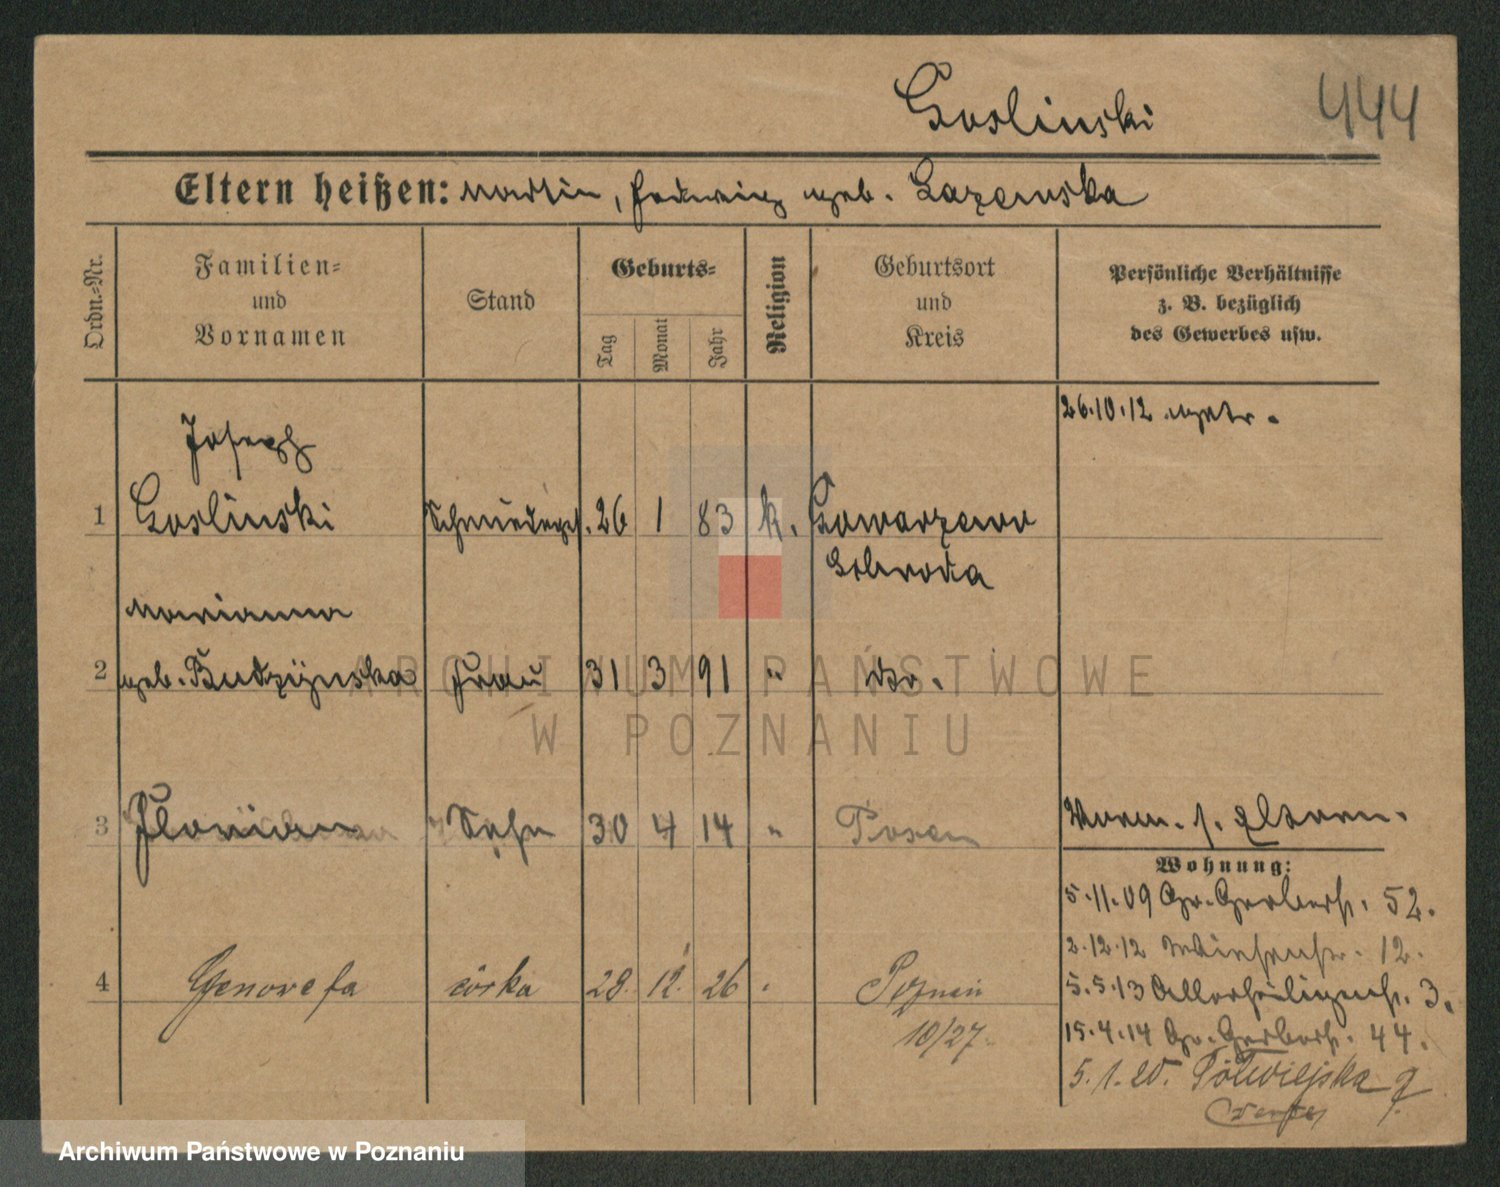 Goslinski
444
Eltern heißen: Martin, Hedwig geb. Lazewska
Ordn.=Nr.
Familien=
und
Vornamen
Stand
Geburts=
Tag
Monat
Jahr
Religion
Geburtsort
und
Kreis
Persönliche Verhältnisse
z. B. bezüglich
des Gewerbes usw.
26.10.12 getr.
Joseph
1 Goslinski Schmiedeges. 26 1 83 k. Gowarzewo
Schroda
Marianna
2 geb. Budzynska Frau 31 3 91 " do.
ARCHIWUM PAŃSTWOWE
W POZNANIU
3 Florian Sohn 30 4 14 " Posen
Vorm. s. Eltern.
Wohnung:
5.11.09 Gr. Gerberstr. 52.
2.12.12 Wiesenstr. 12.
4 Genowefa córka 28. 12. 26 " Poznań
5.5.13 Allerheiligenstr. 3.
10/27.
15.4.14 Gr. Gerberstr. 44.
5.1.20. Półwiejska 9
Archiwum Państwowe w Poznaniu